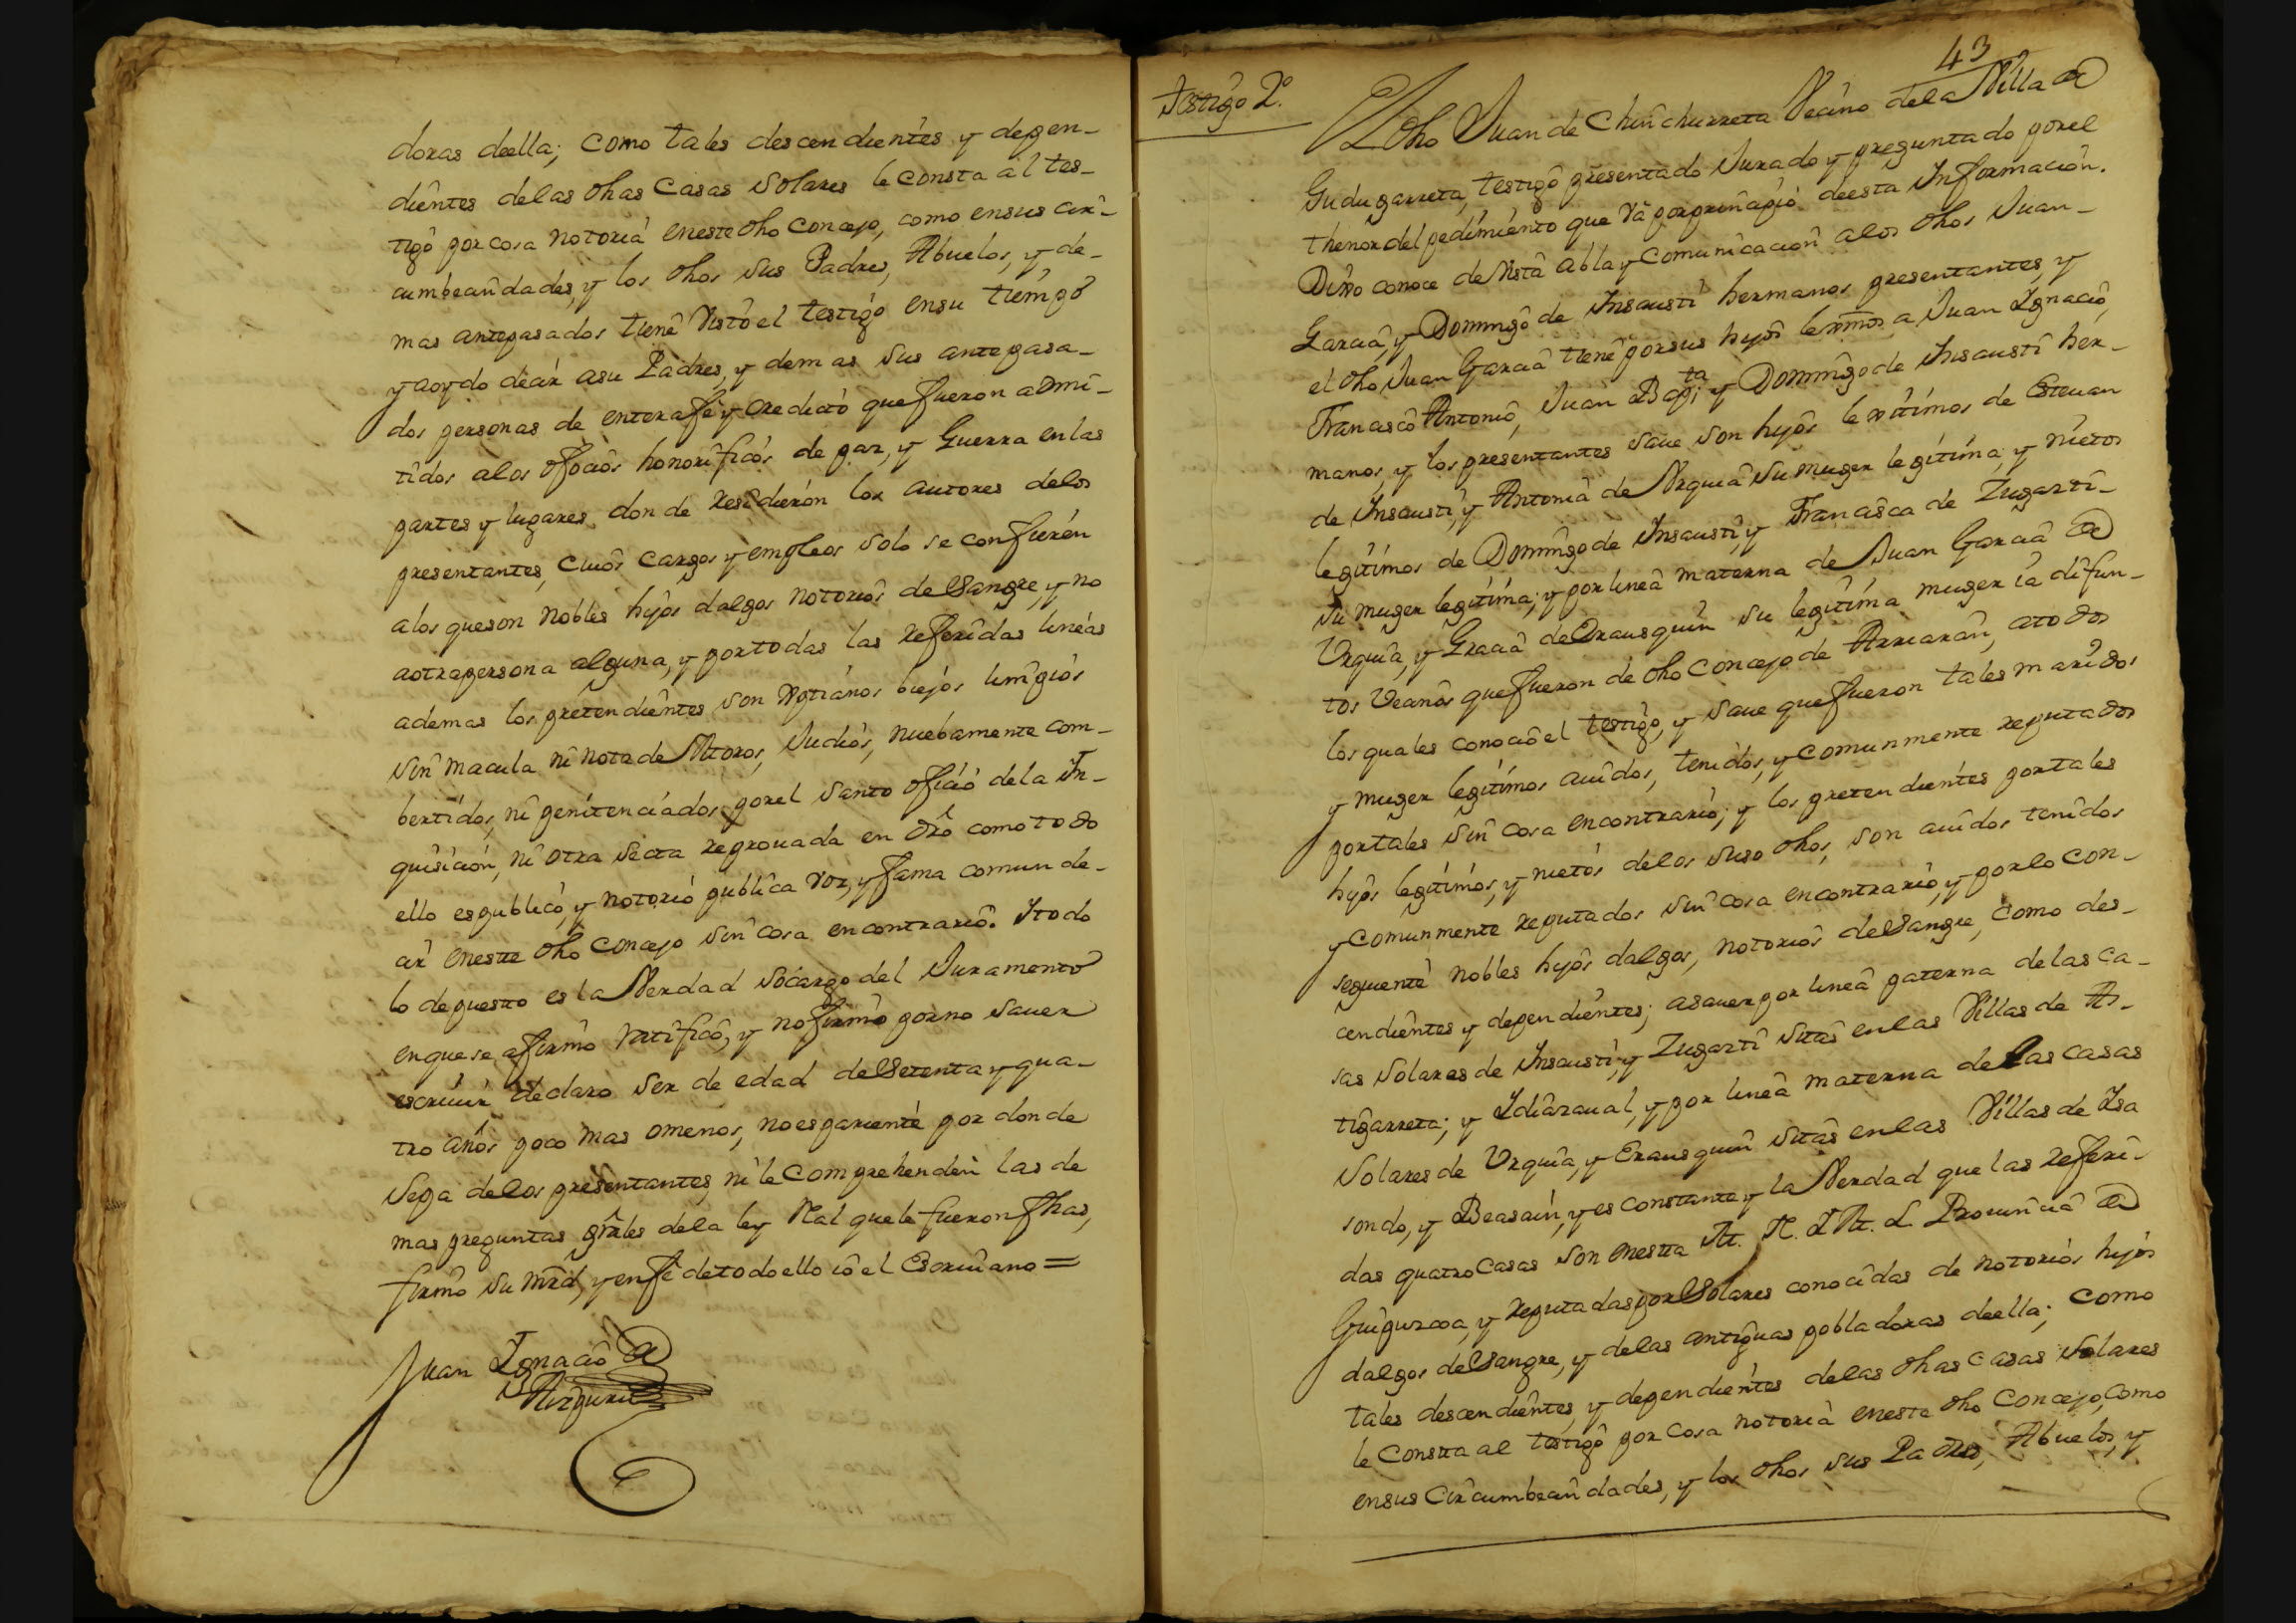 doras deella; como tales descendientes y depen-
dientes delas dhas Casas Solares le consta al tes-
tigo por cosa notoria eneste dho Concejo, como ensus cir-
cumbecindades, y los dhos sus Padres, Abuelos, y de-
mas antepasados tiene visto el testigo ensu tiempo
y aoydo decir asu Padres, y demas sus antepasa-
dos personas de entera fé y credito que fueron admi-
tidos alos oficios honorificos de paz, y Guerra en las
partes y lugares donde residieron los autores delos
presentantes, cuios cargos y empleos solo se confieren
alos queson nobles hijos dalgos notorios de Sangre, y no
aotra persona alguna, y por todas las referidas lineas
ademas los pretendientes son Xptianos biejos limpios
sin macula ni nota de Moros, Judios, nuebamente com-
bertidos, ni penitenciados porel santo oficio dela in-
quisicion, ni otra secta reprouada en dro como todo
ello espublico, y notorio publica voz, y fama comun de-
cir eneste dho Concejo sin cosa encontrario. Ytodo
lo depuesto es la Verdad socargo del Juramento
enque se afirmo ratifico, y nofirmo porno sauer
escriuir declaro ser de edad de Setenta y qua-
tro años poco mas omenos, noes pariente por donde
sepa delos presentantes ni le comprehenden las de
mas preguntas grales dela ley Real quele fueron fhas,
firmo su mrd, y enfe detodoello io el Escriuano =
Juan Ignacio de
Aizpuru
43
Testigo 2º.
El dho Juan de Chinchurreta Vecino dela Villa de
Gudugarreta, testigo presentado Jurado y preguntado porel
thenor del pedimiento que va porprincipio deesta Informacion.
Dixo conoce de vista abla y comunicacion alos dhos Juan
Garcia, y Domingo de Insausti hermanos presentantes, y
el dho Juan Garcia tiene porsus hijos lexmos a Juan Ignacio,
Francisco Antonio, Juan Bapta; y Domingo de Insausti her-
manos, y los presentantes saue son hijos lexitimos de Esteuan
de Insausti, y Antonia de Urquia su muger legitima, y nietos
legitimos de Domingo de Insausti, y Francisca de Zugazti
su muger legitima; y por linea materna de Juan Garcia de
Urquia, y Gracia de Erausquin su legitima muger ia difun-
tos Vecinos quefueron de dho Concejo de Arriaran, atodos
los quales conocio el testigo, y saue quefueron tales maridos
y muger legitimos auidos, tenidos, y comunmente reputados
portales sin cosa encontrario; y los pretendientes portales
hijos legitimos, y nietos delos suso dhos, son auidos tenidos
y comunmente reputados sin cosa encontrario, y porlo con-
seguiente nobles hijos dalgos, notorios deSangre, como des-
cendientes y dependientes; asauer por linea paterna delas ca-
sas Solares de Insausti, y Zugazti sitas enlas Villas de As-
tigarreta; y Idiazaual, y por linea materna de las casas
Solares de Urquia, y Erausquin sitas enlas Villas de Isa
sondo, y Beasain, y es constante y la Verdad que las referi-
das quatro Casas son enesta M. N. y M. L. Prouincia de
Guipuzcoa, y reputadas por Solares conocidas de notorios hijos
dalgos deSangre, y delas antiguas pobladoras deella; como
tales descendientes y dependientes delas dhas casas Solares
le consta al testigo por cosa notoria eneste dho Concejo, como
ensus Circumbecindades, y los dhos sus Padres, Abuelos, y